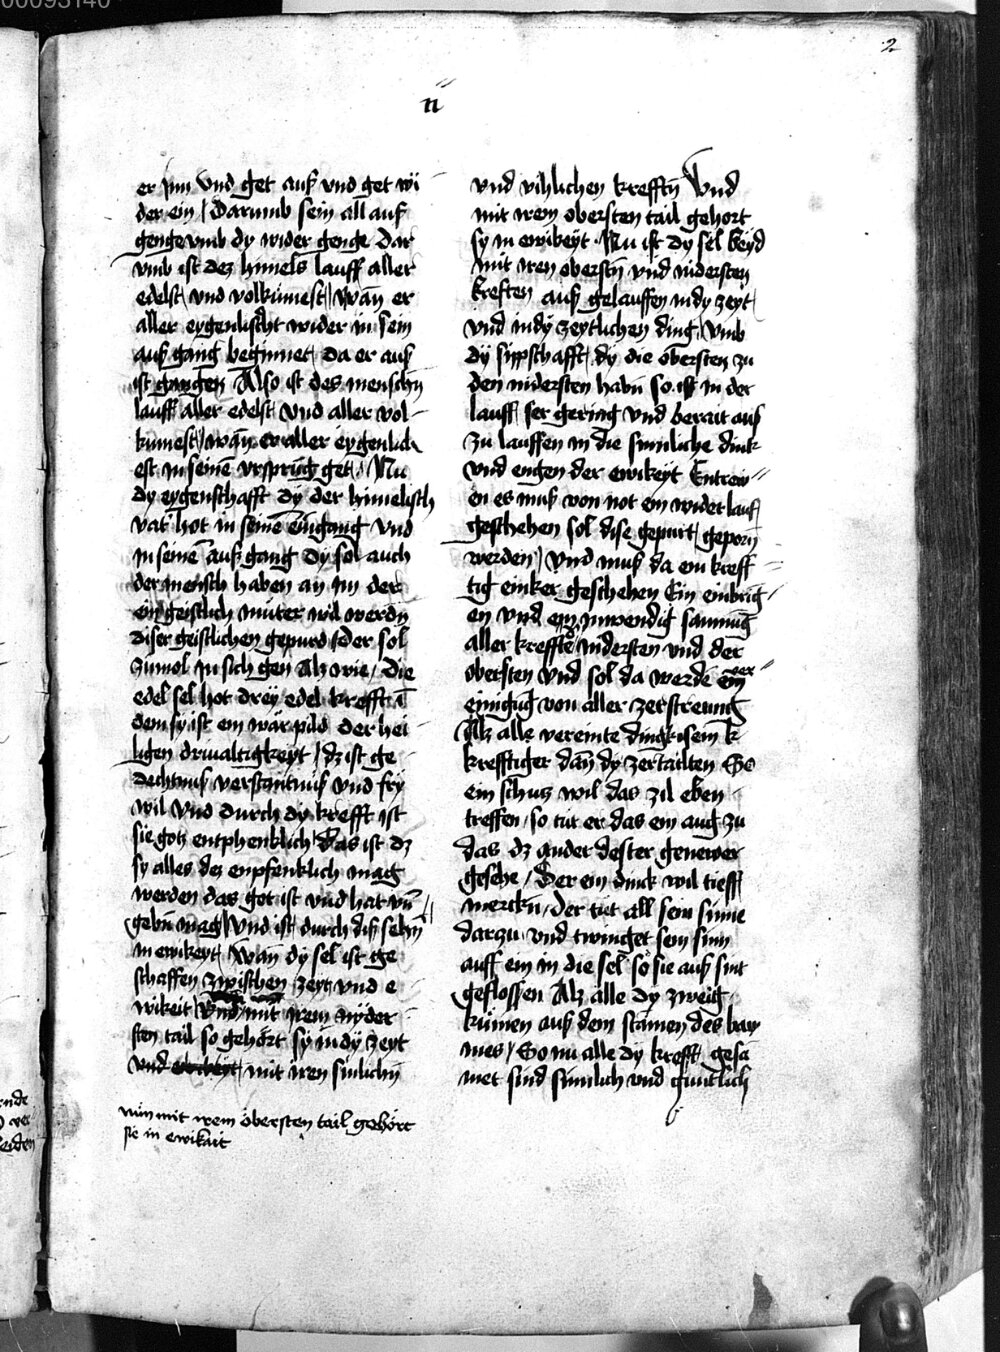 00093140
2
ii
er jnn vnd get auß vnd get wi
der ein / Darumb sein all auß
genge vmb dy wider genge Dar
vmb ist dez himels lauff aller
edelst vnd volkumest / wan̄ er
aller eygenlischt wider in sein
auß gang beginnet da er auß
ist gangen Also ist des menschn̄
lauff aller edelst vnd aller vol
kumest / wan̄ er aller eygenlich
est in seinē vrsprūg get / Nu
dy eygenschafft dy der himelisch
vat' hot in seinē eingang vnd
in seinē auß gang dy sol auch
der mensch haben an im der
ein geistlich muter wil werdn̄
diser geistlichen gepurd / der sol
zumol in sich gen Alz wie / Die
edel sel hot drey edel krefft ī
dem sy ist ein war pild der hei
ligen driualtigkeyt / dz ist ge
dechtnuß verstantnuß vnd fry
wil vnd durch dy krefft ist
sie gotz entphenklich / das ist dz
sy alles dez enpfenklich mag
werden das got ist vnd hat vn̄
gebn̄ mag / Vnd ist durch diß sehn̄
in ewikeyt / Wan̄ dy sel ist ge
schaffen zwischen zeyt vnd e
wikeit / Vnd mit irem nyder
sten tail so gehört sy in dy zeyt
vnd mit iren sinlichn̄
mit irem öbersten tail gehört
sie in ewikait
vnd vihlichen krefftn̄ Vnd
mit irem obersten tail gehort
sy in ewikeyt · Nu ist dy sel beyd
mit iren oberstn̄ vnd nidersten
kreften auß gelauffen in dy zeyt
vnd in dy zeytlichen ding / vmb
dy sippschafft / dy die obersten zu
den nidersten habn̄ so ist in der
lauff ser gering vnd berait auß
zu lauffen in die sinnliche dink
vnd engen der ewikeyt Entrew
en es muß von not ein wider lauf
geschehen sol dise gepurt / geporn
werden / Vnd muß da ein kreff
tig einker geschehen Ein einbrig
en vnd ein inwendig samnūg
aller kreffte nidersten vnd der
obersten vnd sol da werde ein
einigūg von aller zerstreuung
Alz alle vereinte dingk sein k
krefftiger dan̄ dy zertailten So
ein schutz wil das zil eben
treffen / so tut er das ein aug zu
das dz ander dester genewer
gesehe / Der ein dinck wil tieff
mercku / der tut all sein sinne
darzu vnd twinget sein sinn
auff ein in die sel so sie auß sint
geflossen Alz alle dy zweig
kumen auß dem stamen des baw
mes / So nu alle dy krefft gesa
met sind sinnlich vnd gmtlich